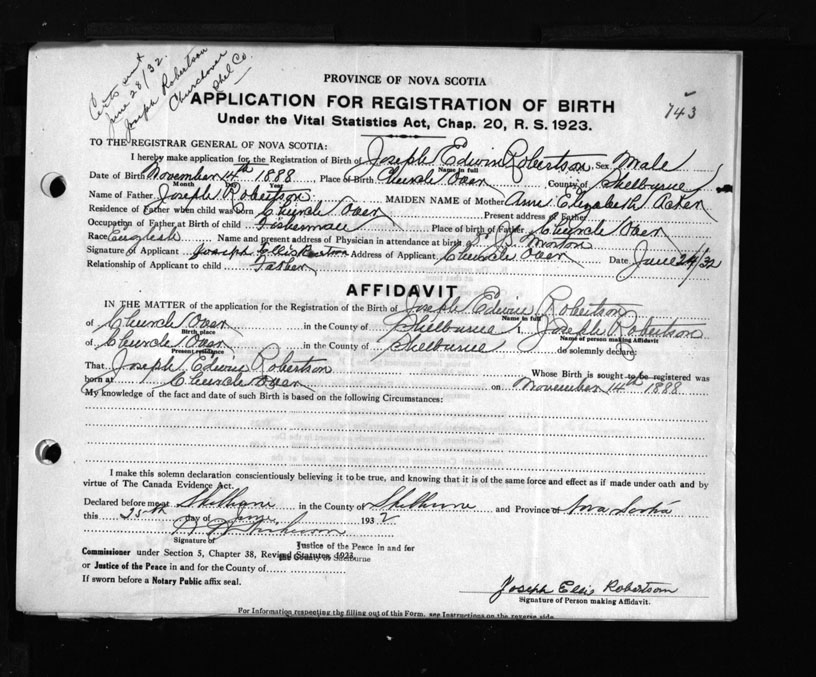 Certs sent
June 28/32.
Joseph Robertson
Churchover
Shel Co.
PROVINCE OF NOVA SCOTIA
743
APPLICATION FOR REGISTRATION OF BIRTH
Under the Vital Statistics Act, Chap. 20, R. S. 1923.
TO THE REGISTRAR GENERAL OF NOVA SCOTIA:
I hereby make application for the Registration of Birth of Joseph Edwin Robertson Sex Male
Name in full
Date of Birth November 14th 1888 Place of Birth Church Over County of Shelburne
Month Day Year
Name of Father Joseph Robertson MAIDEN NAME of Mother Ann Elizabeth Acker
Residence of Father when child was born Church Over Present address of Father
Occupation of Father at Birth of child Fisherman Place of birth of Father Church Over
Race English Name and present address of Physician in attendance at birth of Morton
Signature of Applicant Joseph Ellis Robertson Address of Applicant Church Over Date June 24/32
Relationship of Applicant to child Father
AFFIDAVIT
IN THE MATTER of the application for the Registration of the Birth of Joseph Edwin Robertson
Name in full
of Church Over in the County of Shelburne I, Joseph Robertson
Birth place Name of person making Affidavit
of Church Over in the County of Shelburne do solemnly declare:
Present residence
That Joseph Edwin Robertson Whose Birth is sought to be registered was
born at Church Over on November 14th 1888
My knowledge of the fact and date of such Birth is based on the following Circumstances:
I make this solemn declaration conscientiously believing it to be true, and knowing that it is of the same force and effect as if made under oath and by
virtue of The Canada Evidence Act.
Declared before me at Shelburne in the County of Shelburne and Province of Nova Scotia
this 25th day of June 1932
Signature of
Justice of the Peace in and for
the County of Shelburne
Commissioner under Section 5, Chapter 38, Revised Statutes, 1923
or Justice of the Peace in and for the County of
If sworn before a Notary Public affix seal.
Joseph Ellis Robertson
Signature of Person making Affidavit.
For Information respecting the filling out of this Form, see Instructions on the reverse side